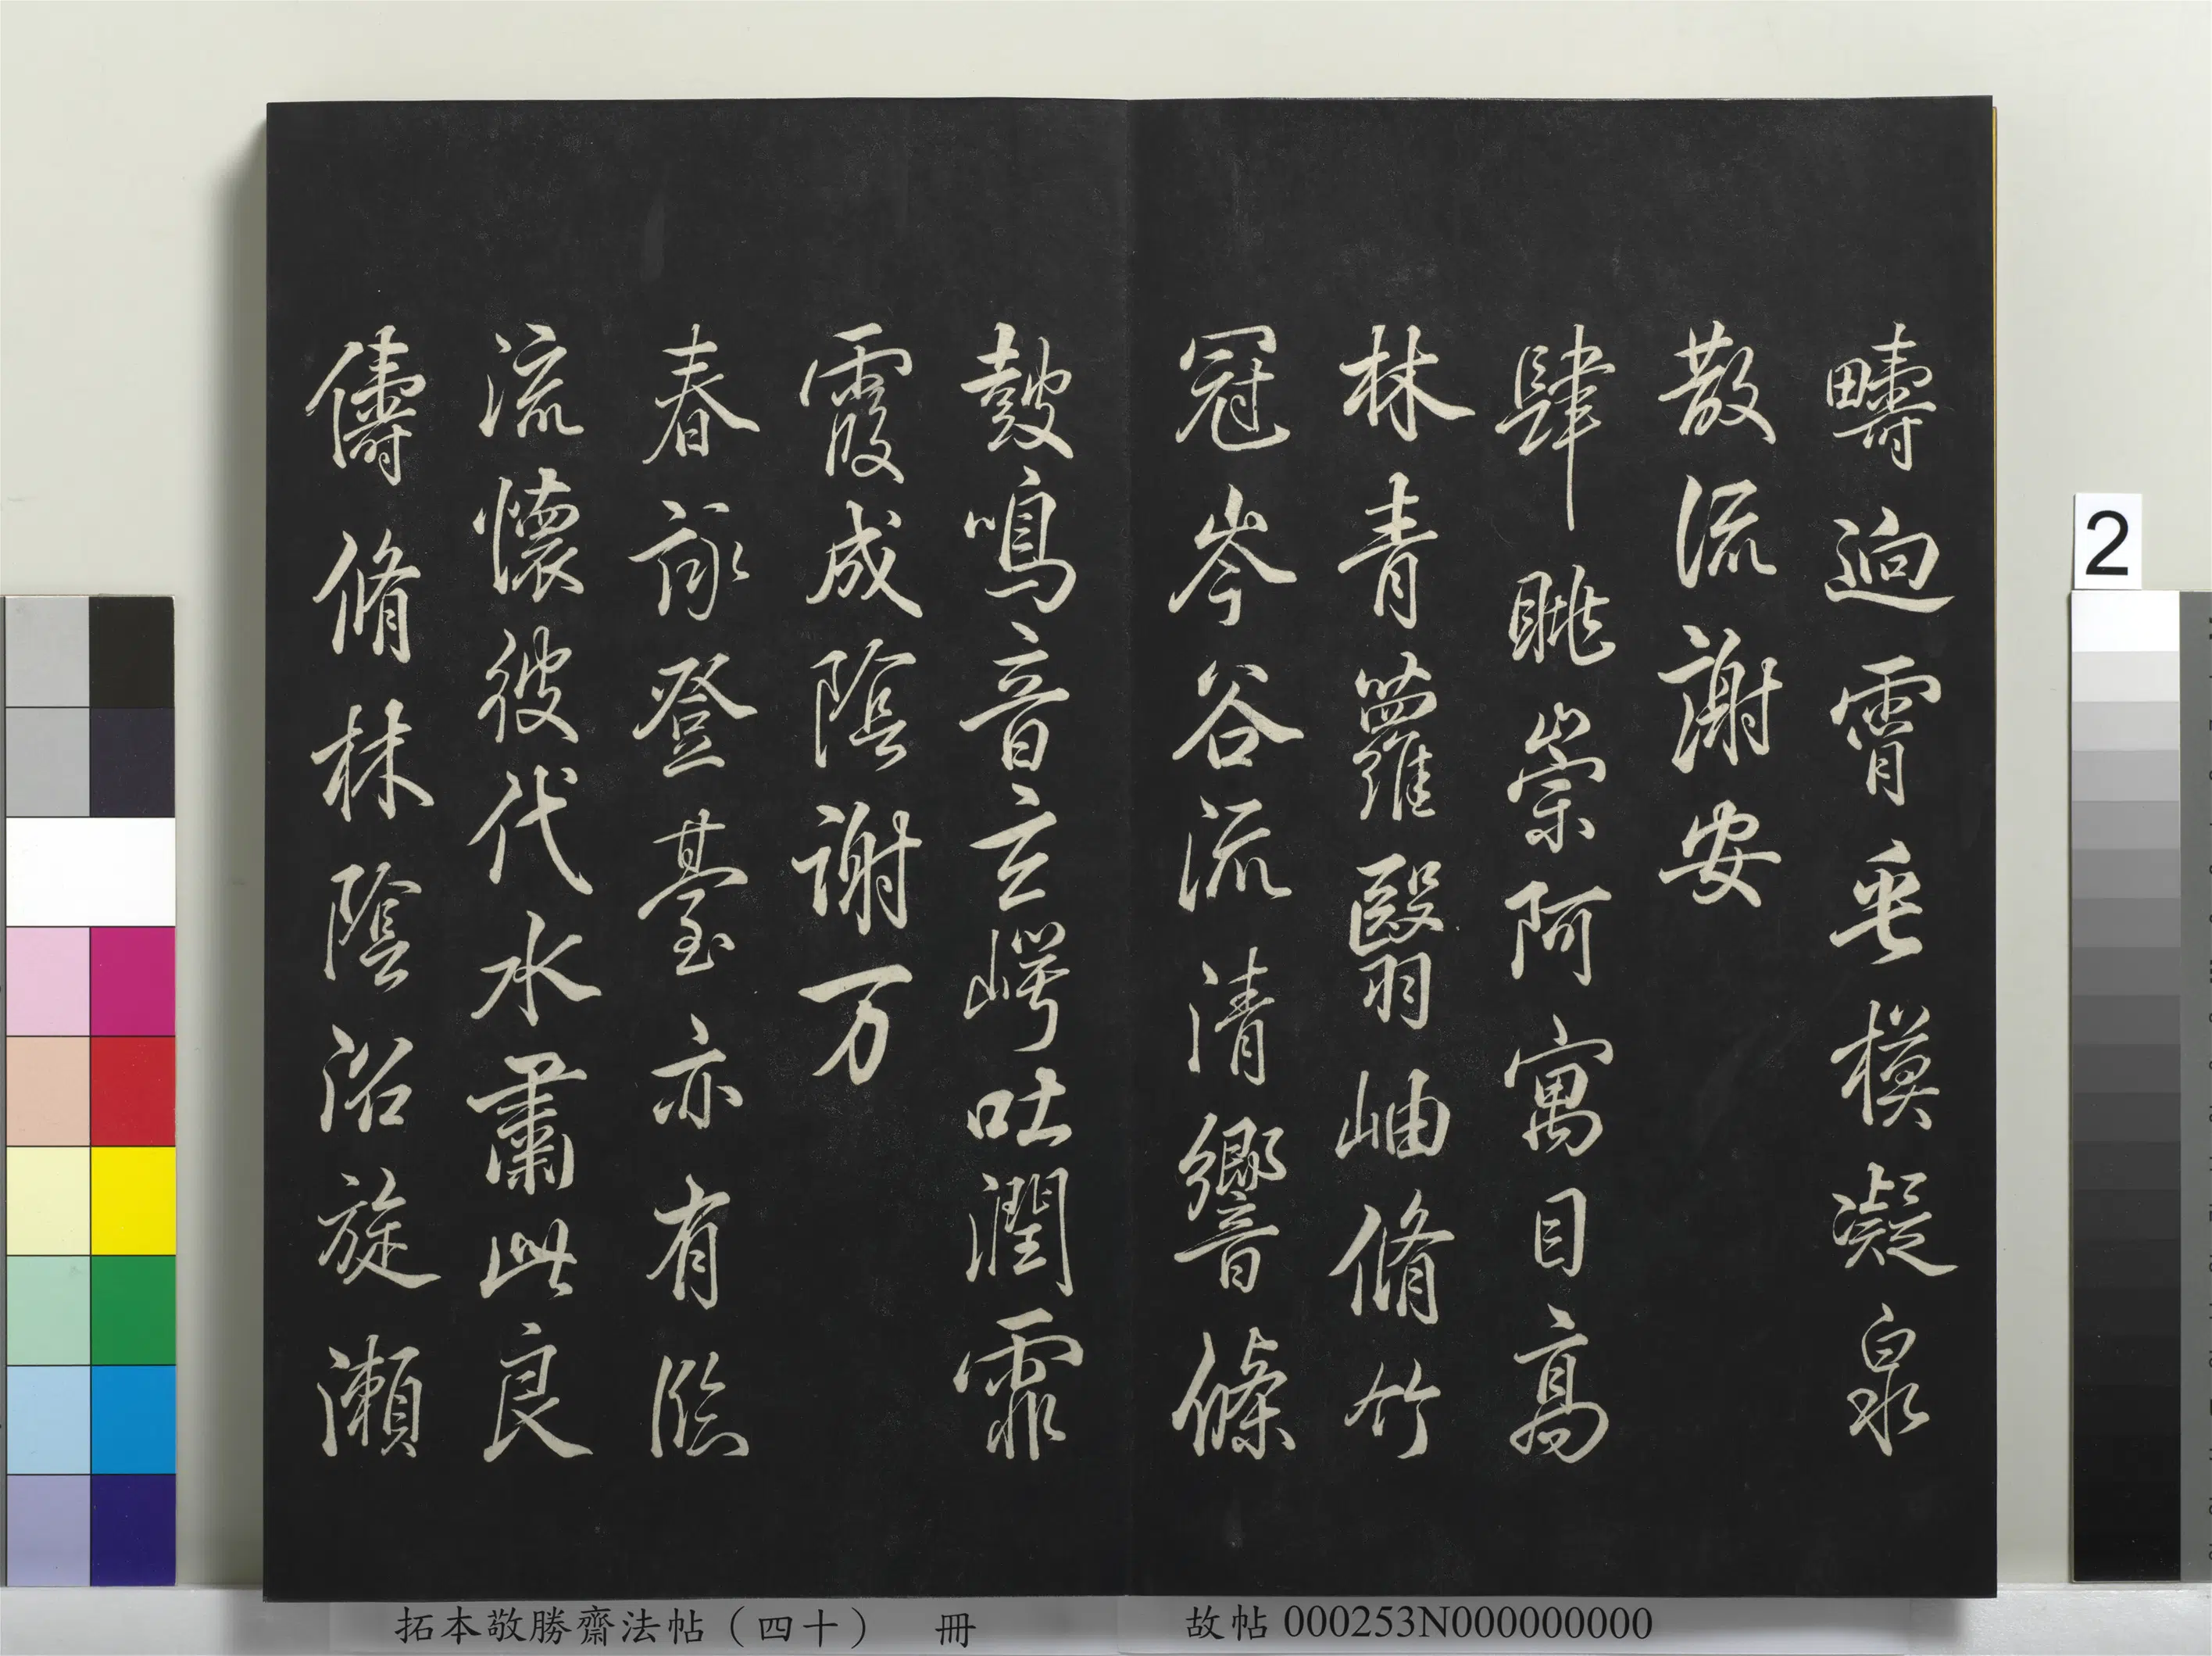 疇迥霄垂模凝泉
散流謝安
肆眺崇阿寓目高
林青蘿翳岫脩竹
冠岑谷流清響條
鼓鳴音玄崿吐潤霏
霞成陰謝万
春詠登臺亦有臨
流懷彼伐水肅此良
儔脩林陰沼旋瀨
拓本敬勝齋法帖(四十) 冊
故帖000253N000000000
2